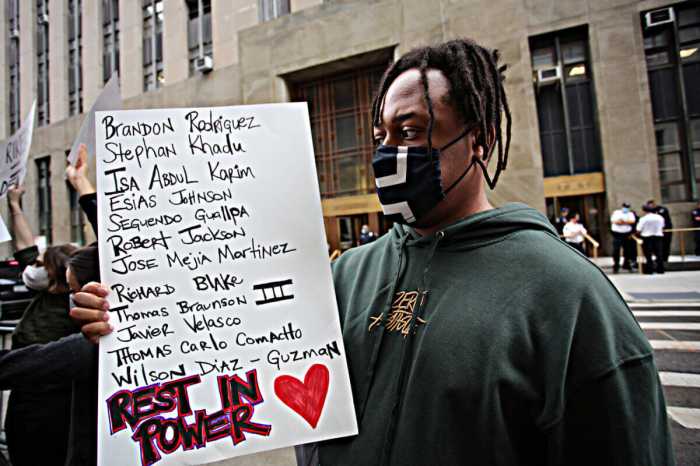 Brandon Rodriguez
Stephan Khadu
Isa Abdul Karim
Esias Johnson
Seguendo Guallpa
Robert Jackson
Jose Mejia Martinez
Richard Blake
Thomas Braunson III
Javier Velasco
Thomas Carlo Comacho
Wilson Diaz - Guzman
REST IN
POWER